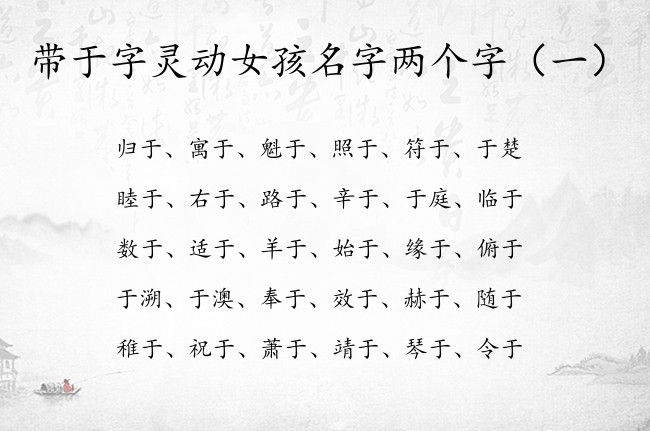 带于字灵动女孩名字两个字（一）
归于、寓于、魁于、照于、符于、于楚
睦于、右于、路于、辛于、于庭、临于
数于、适于、羊于、始于、缘于、俯于
于溯、于澳、奉于、效于、赫于、随于
稚于、祝于、萧于、靖于、琴于、令于